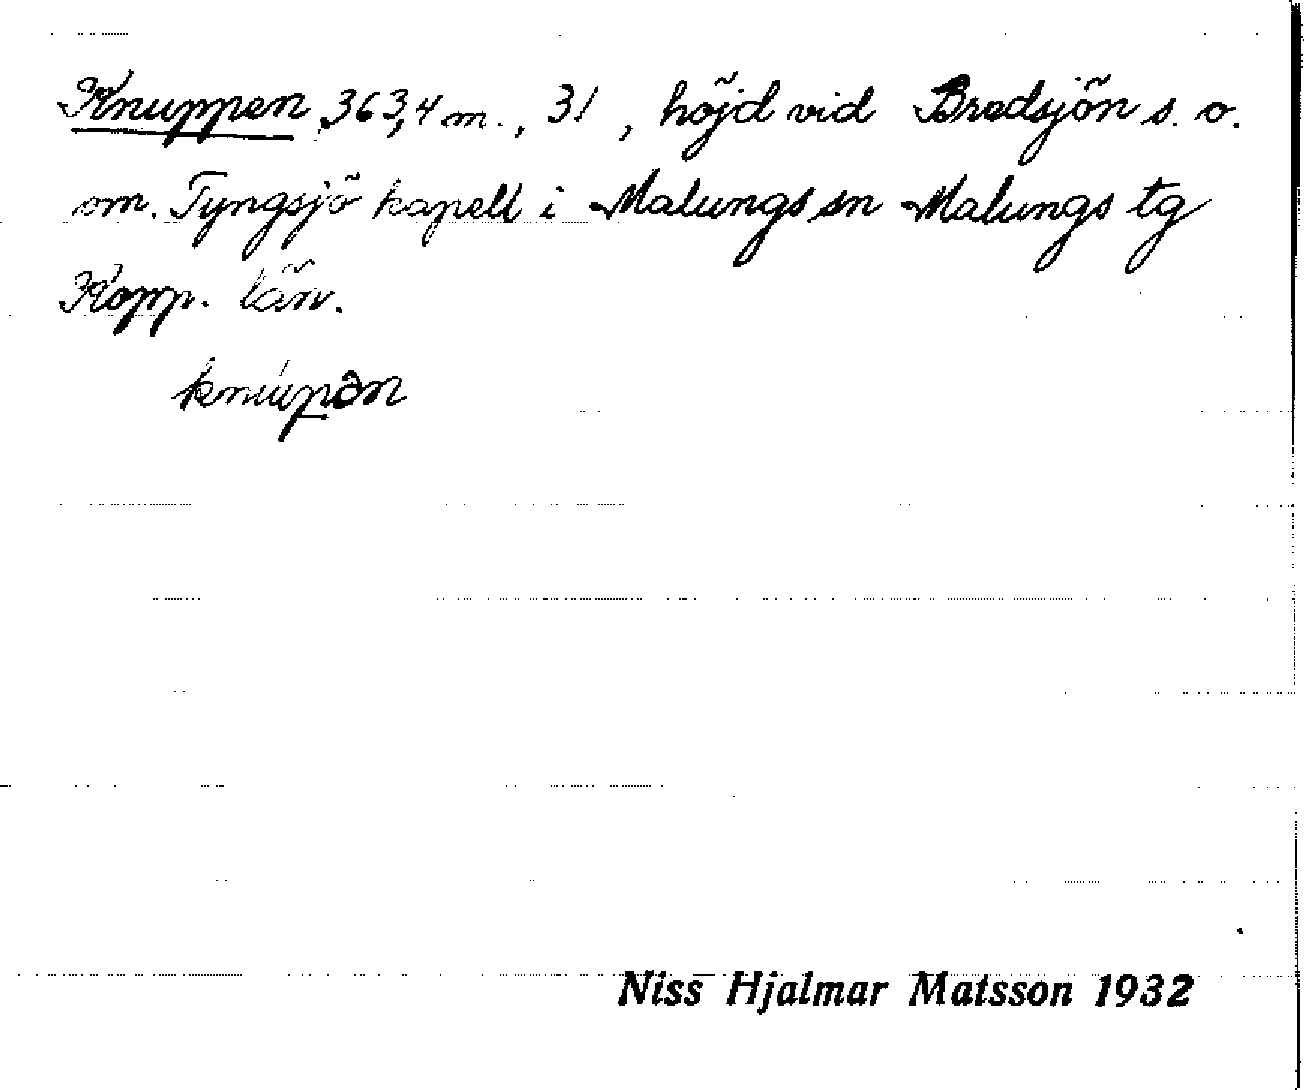 Knuppen 363,4 m., 31, höjd vid Bredsjön s. o.
om. Tyngsjö kapell i Malungs sn Malungs tg
Kopp. län.
knúpən
Niss Hjalmar Matsson 1932